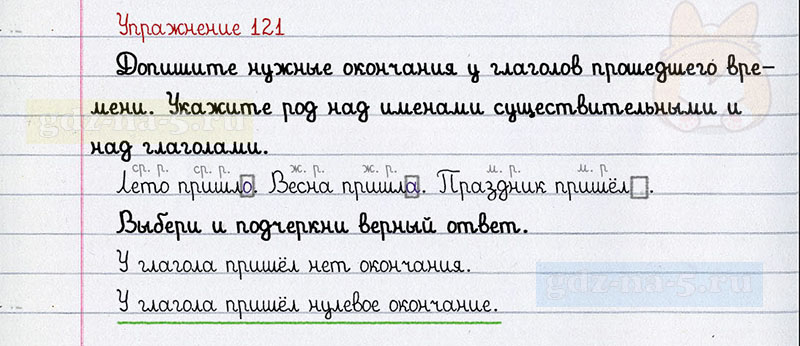 Упражнение 121
Допишите нужные окончания у глаголов прошедшего вре-
мени. Укажите род над именами существительными и
над глаголами.
ср. р. ср. р. ж. р. ж. р. м. р. м. р.
Лето пришло. Весна пришла. Праздник пришёл .
Выбери и подчеркни верный ответ.
У глагола пришёл нет окончания.
У глагола пришёл нулевое окончание.
gdz-na-5.ru
gdz-na-5.ru